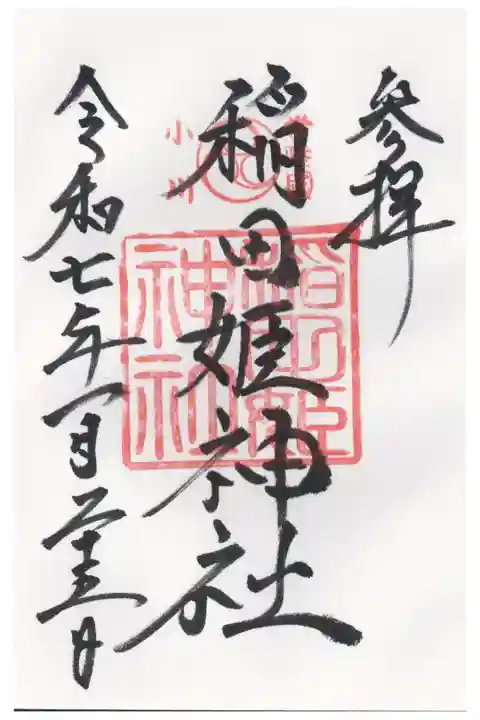 参拝
稲田姫神社
小川
稲田姫神社
令和七年一月二十三日